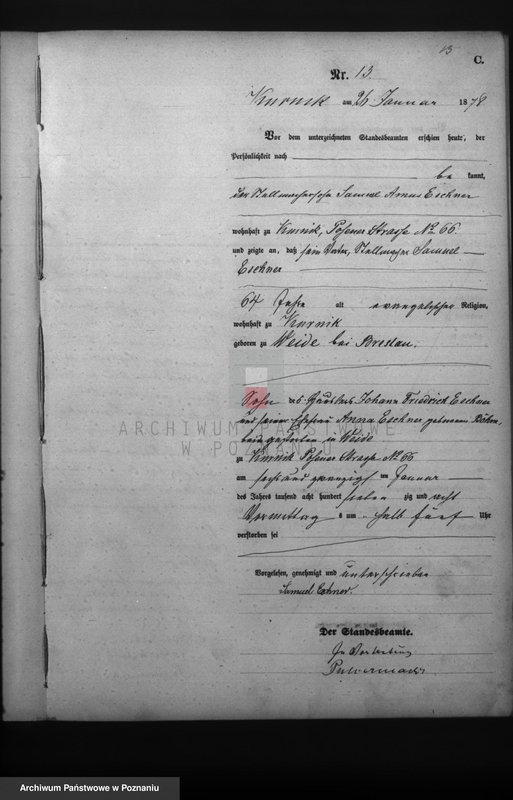 13
C.
Nr. 13.
Kurnik am 26 Januar 1878
Vor dem unterzeichneten Standesbeamten erschien heute, der
Persönlichkeit nach
be kannt,
der Stellmachersohn Samuel Eschner
wohnhaft zu Kurnik, Posener Strasse No 66
und zeigte an, daß sein Vater, Stellmacher Samuel
Eschner
64 Jahre alt evangelischer Religion,
wohnhaft zu Kurnik
geboren zu Weide bei Breslau.
Sohn des Johann Friedrich Eschner
und seiner Ehefrau Anna Eschner geborene
beide gestorben in Weide
zu Kurnik Posener Strasse No 66
am sechs und zwanzigsten Januar
des Jahres tausend acht hundert sieben zig und acht
Vormittags um halb fünf Uhr
verstorben sei
Vorgelesen, genehmigt und unterschrieben
Samuel Eschner.
Der Standesbeamte.
In Vertretung
ARCHIWUM PAŃSTWOWE
W POZNANIU
Archiwum Państwowe w Poznaniu